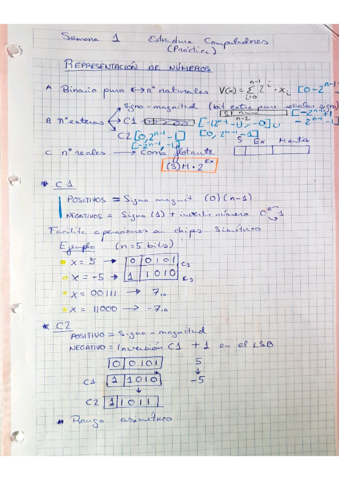 Semana 1 Estructura Computadores
(Práctica)
REPRESENTACIÓN DE NÚMEROS
A Binario puro ↔ nº naturales V(x) = Σ 2^i · x_i [0 - 2^n-1
Signo-magnitud (bit extra para señalar signo)
B nº enteros C1
C2 [0, 2^n-1 - 1] [0, 2^n-1 - 1]
C nº reales → coma flotante S Ex Mantisa
(S) M · 2^Ex
* C1
POSITIVOS = Signo magnit (0) (n-1)
NEGATIVOS = Signo (1) + invierte número 0 1
Facilita operaciones en chips. Simétrico
Ejemplo (n = 5 bits)
x = 5 → 0 0 1 0 1 C1
x = -5 → 1 1 0 1 0
x = 00111 → 7₁₀
x = 11000 → -7₁₀
* C2
POSITIVO = Signo-magnitud
NEGATIVO = Inversión C1 + 1 en el LSB
0 0 1 0 1 5
C1 1 1 0 1 0 -5
C2 1 1 0 1 1
Rango asimétrico